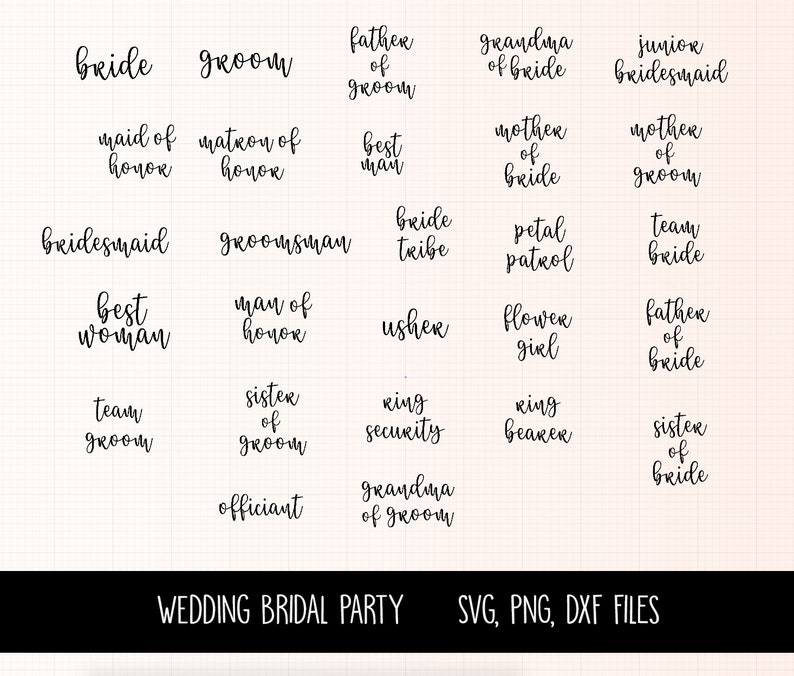 bride
groom
father
of
groom
grandma
of bride
junior
bridesmaid
maid of
honor
matron of
honor
best
man
mother
of
bride
mother
of
groom
bridesmaid
groomsman
bride
tribe
petal
patrol
team
bride
best
woman
man of
honor
usher
flower
girl
father
of
bride
team
groom
sister
of
groom
ring
security
ring
bearer
sister
of
bride
officiant
grandma
of groom
WEDDING BRIDAL PARTY
SVG, PNG, DXF FILES